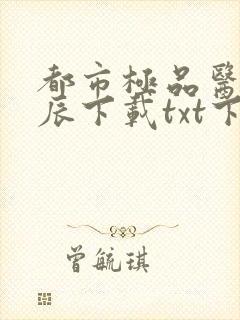 都市極品醫
辰下載txt下
曾毓琪